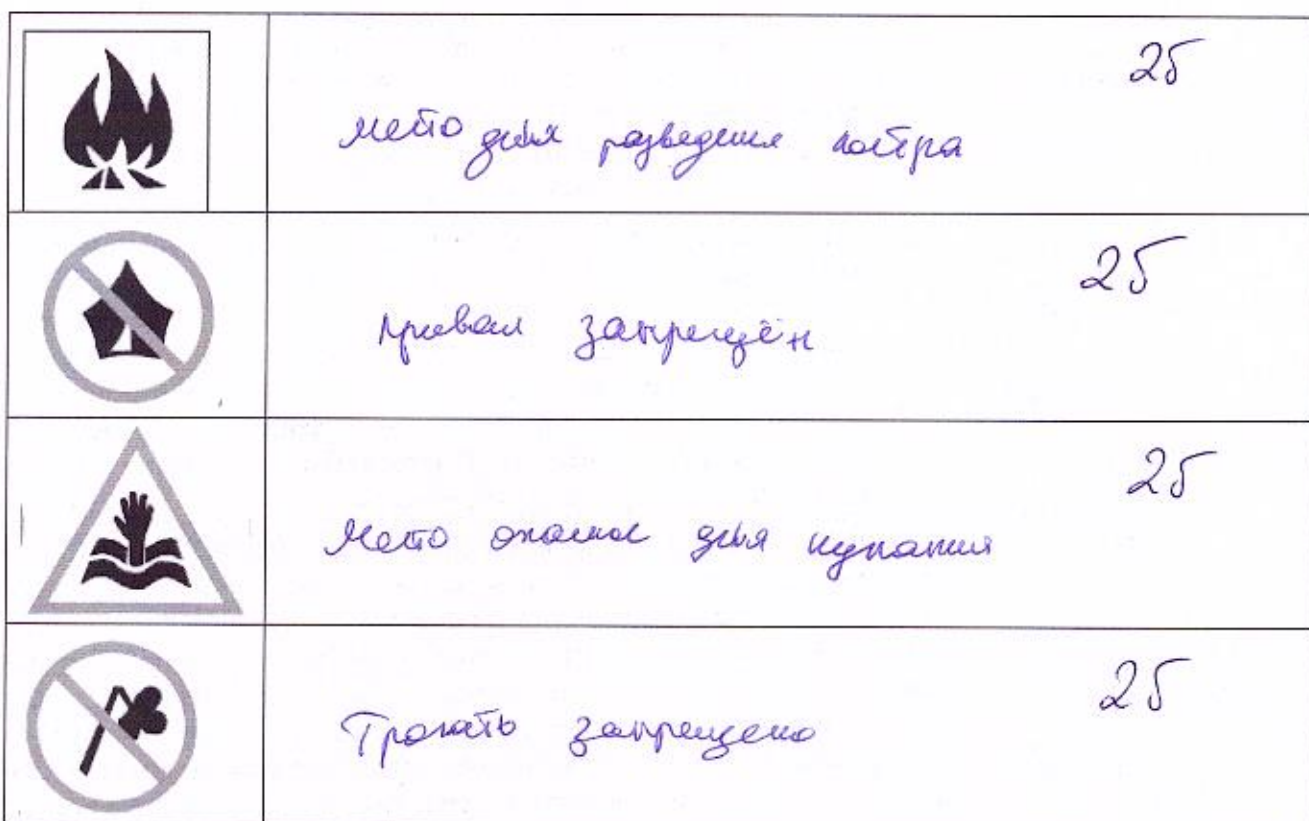 2б
Место для разведения костра
2б
привал запрещён
2б
Место опасное для купания
2б
Трогать запрещено